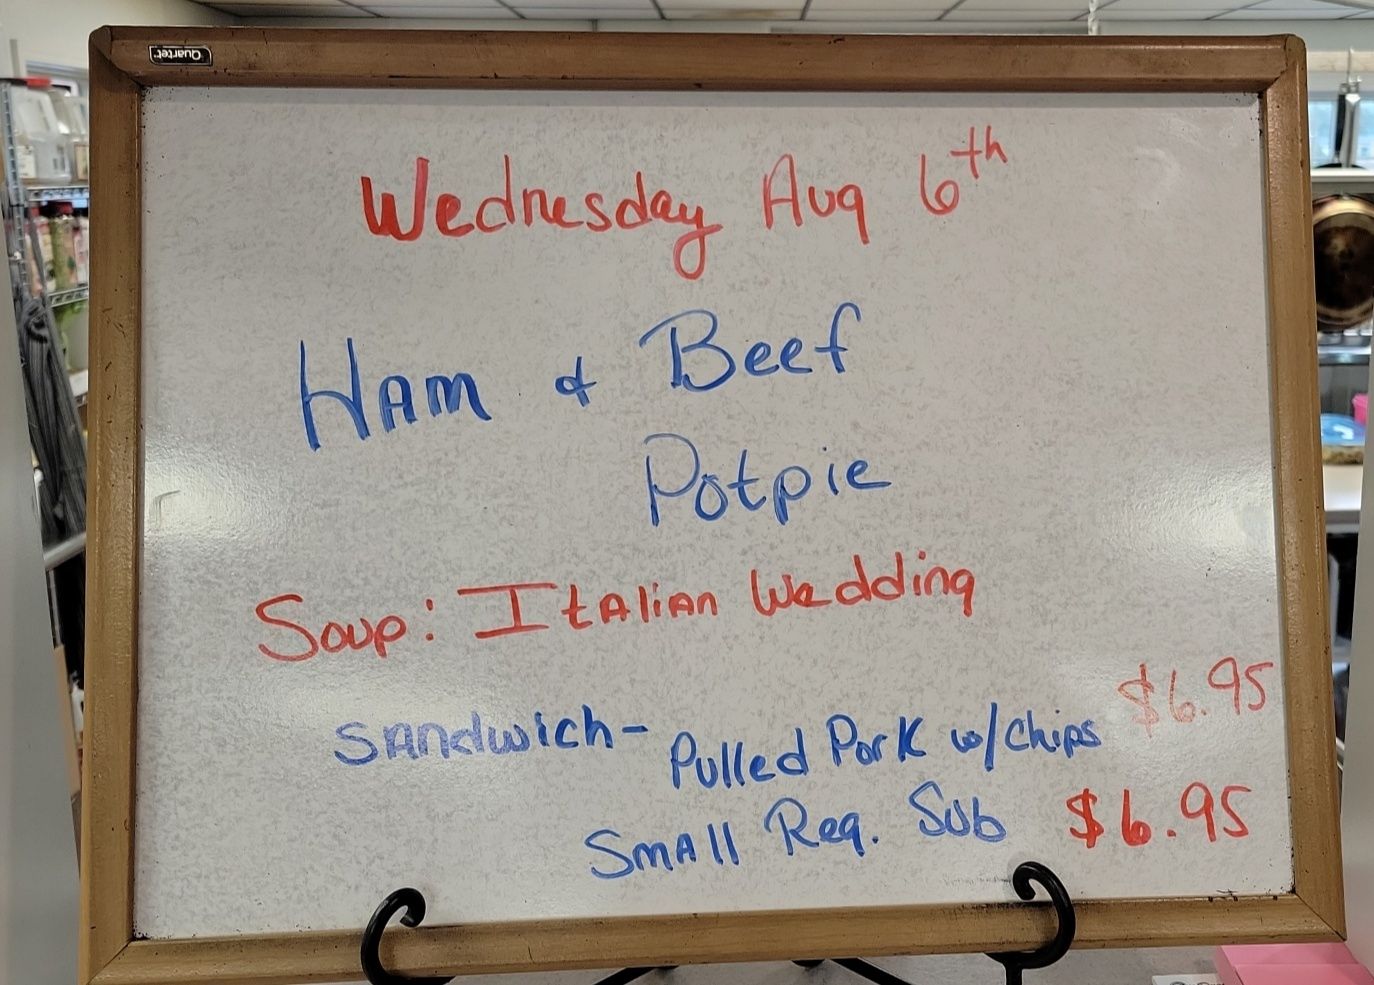 Quartet
Wednesday Aug 6th
HAM & Beef
Potpie
Soup: ItAliAn Wedding
SANdwich- Pulled Pork w/Chips $6.95
SmAll Reg. Sub $6.95